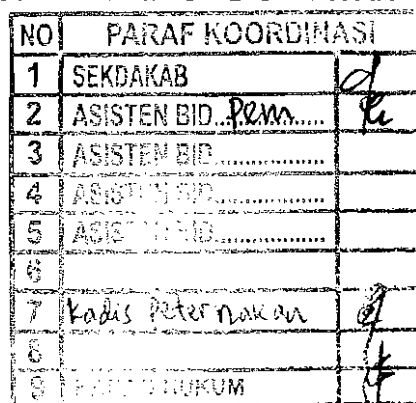 NO PARAF KOORDINASI
1 SEKDAKAB
2 ASISTEN BID...Pem.....
3 ASISTEN BID...............
4 ASISTEN BID...............
5 ASISTEN BID...............
6
7 Kadis Peternakan
8
9 HUKUM